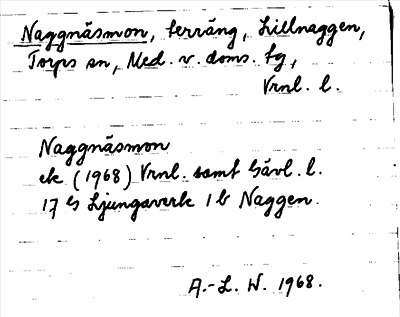 Naggnäsmon, terräng, Lillnaggen,
Torps sn, Med. v. doms. tg,
Vrnl. l.
Naggnäsmon
ek (1968) Vrnl. samt Gävl. l.
17 G Ljungaverk 1 b Naggen.
A.-L. W. 1968.